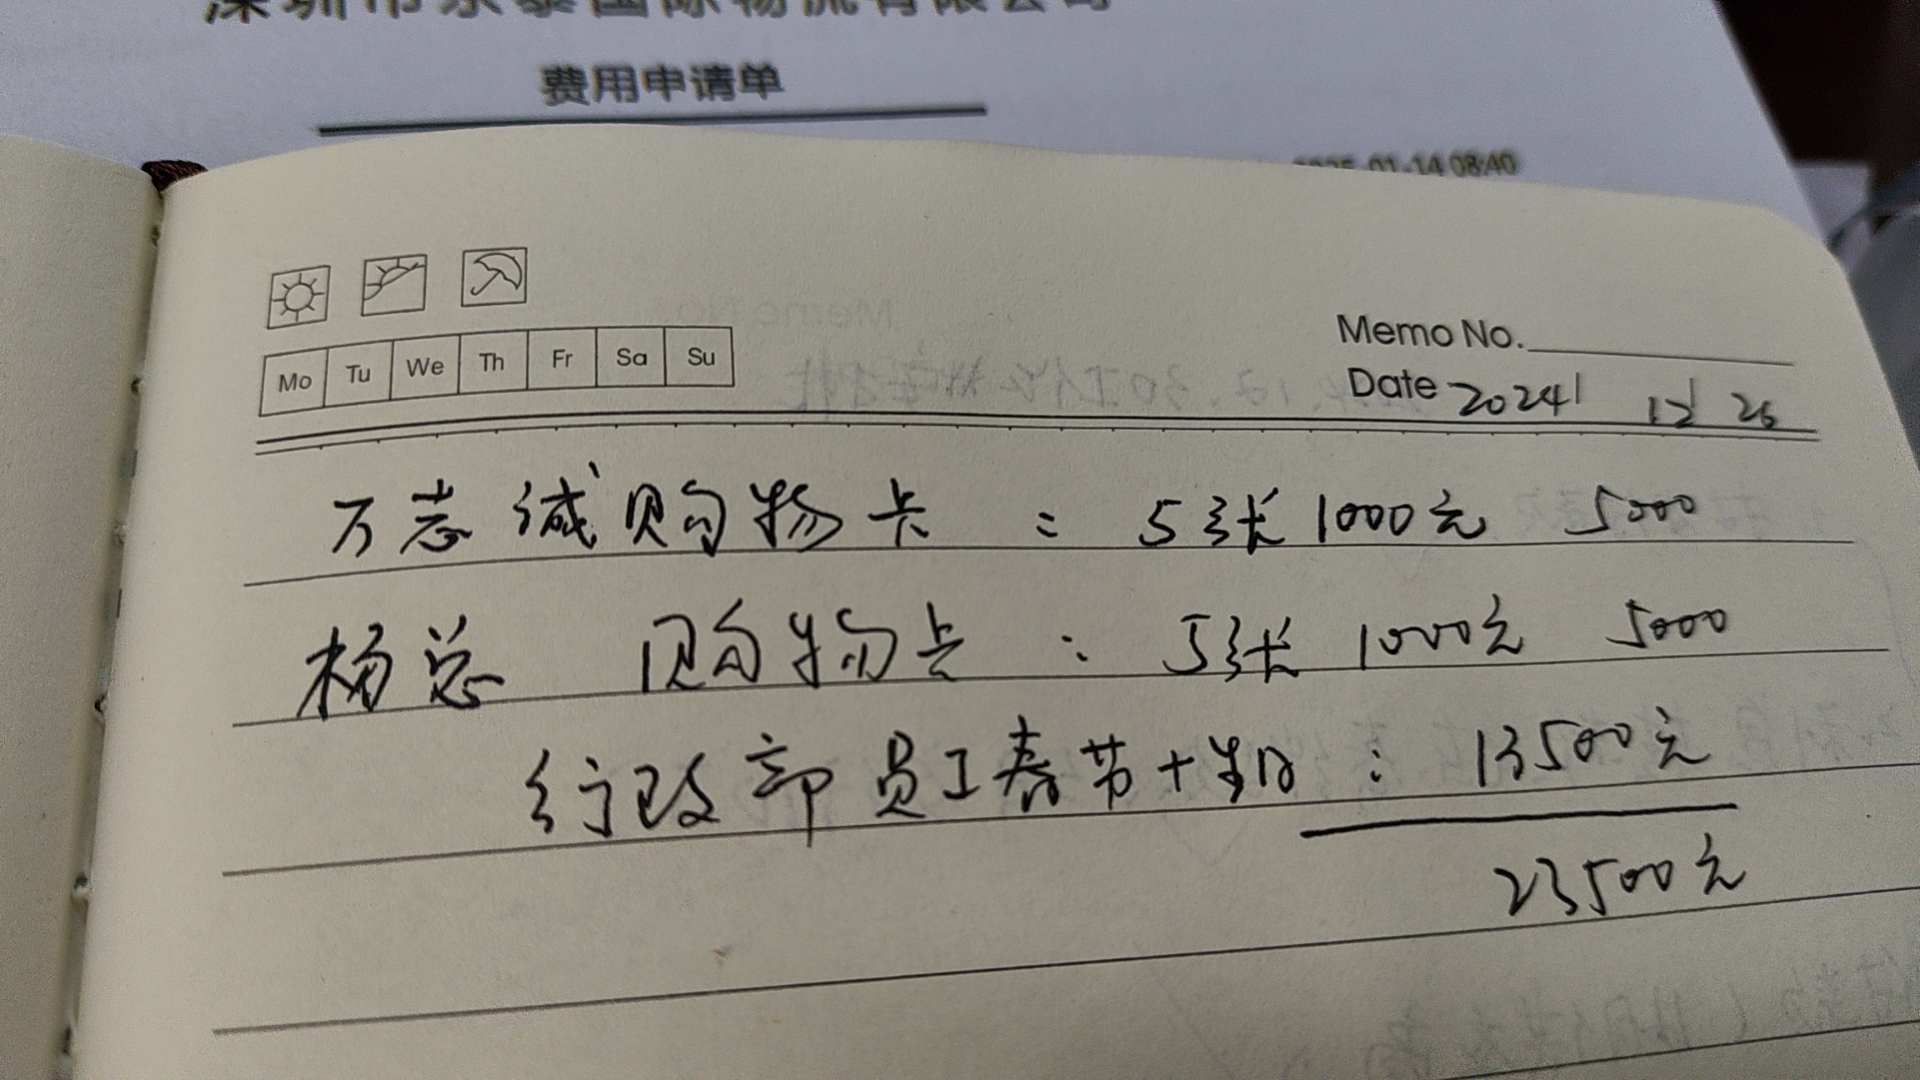 深圳市永泰国际物流有限公司
费用申请单
2025-01-14 08:40
Memo No.
Date 2024 12 26
Mo Tu We Th Fr Sa Su
万志诚购物卡 : 5张 1000元 5000
杨总 购物卡 : 5张 1000元 5000
行政部员工春节+生日 : 13500元
23500元